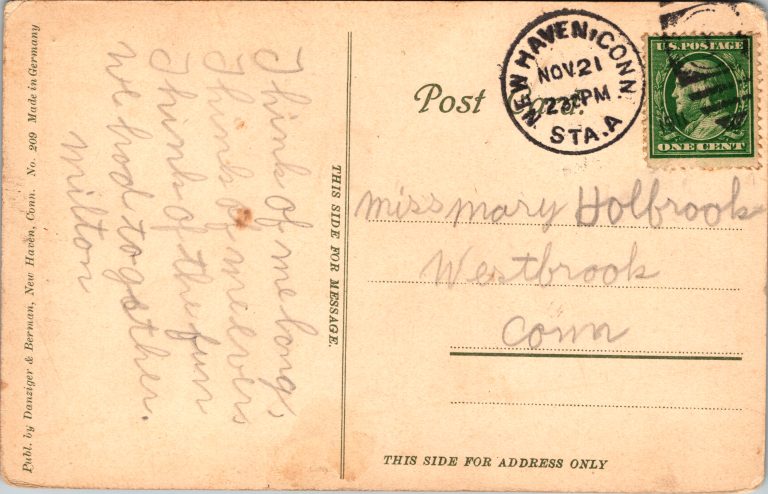 Publ. by Danziger & Berman, New Haven, Conn. No. 209 Made in Germany
Think of me long,
Think of me ever
Think of the fun
we had together.
Milton
THIS SIDE FOR MESSAGE.
Post Card.
NEW HAVEN, CONN.
NOV 21
PM
STA. A
U.S. POSTAGE
ONE CENT
miss mary Holbrook
Westbrook
Conn
THIS SIDE FOR ADDRESS ONLY